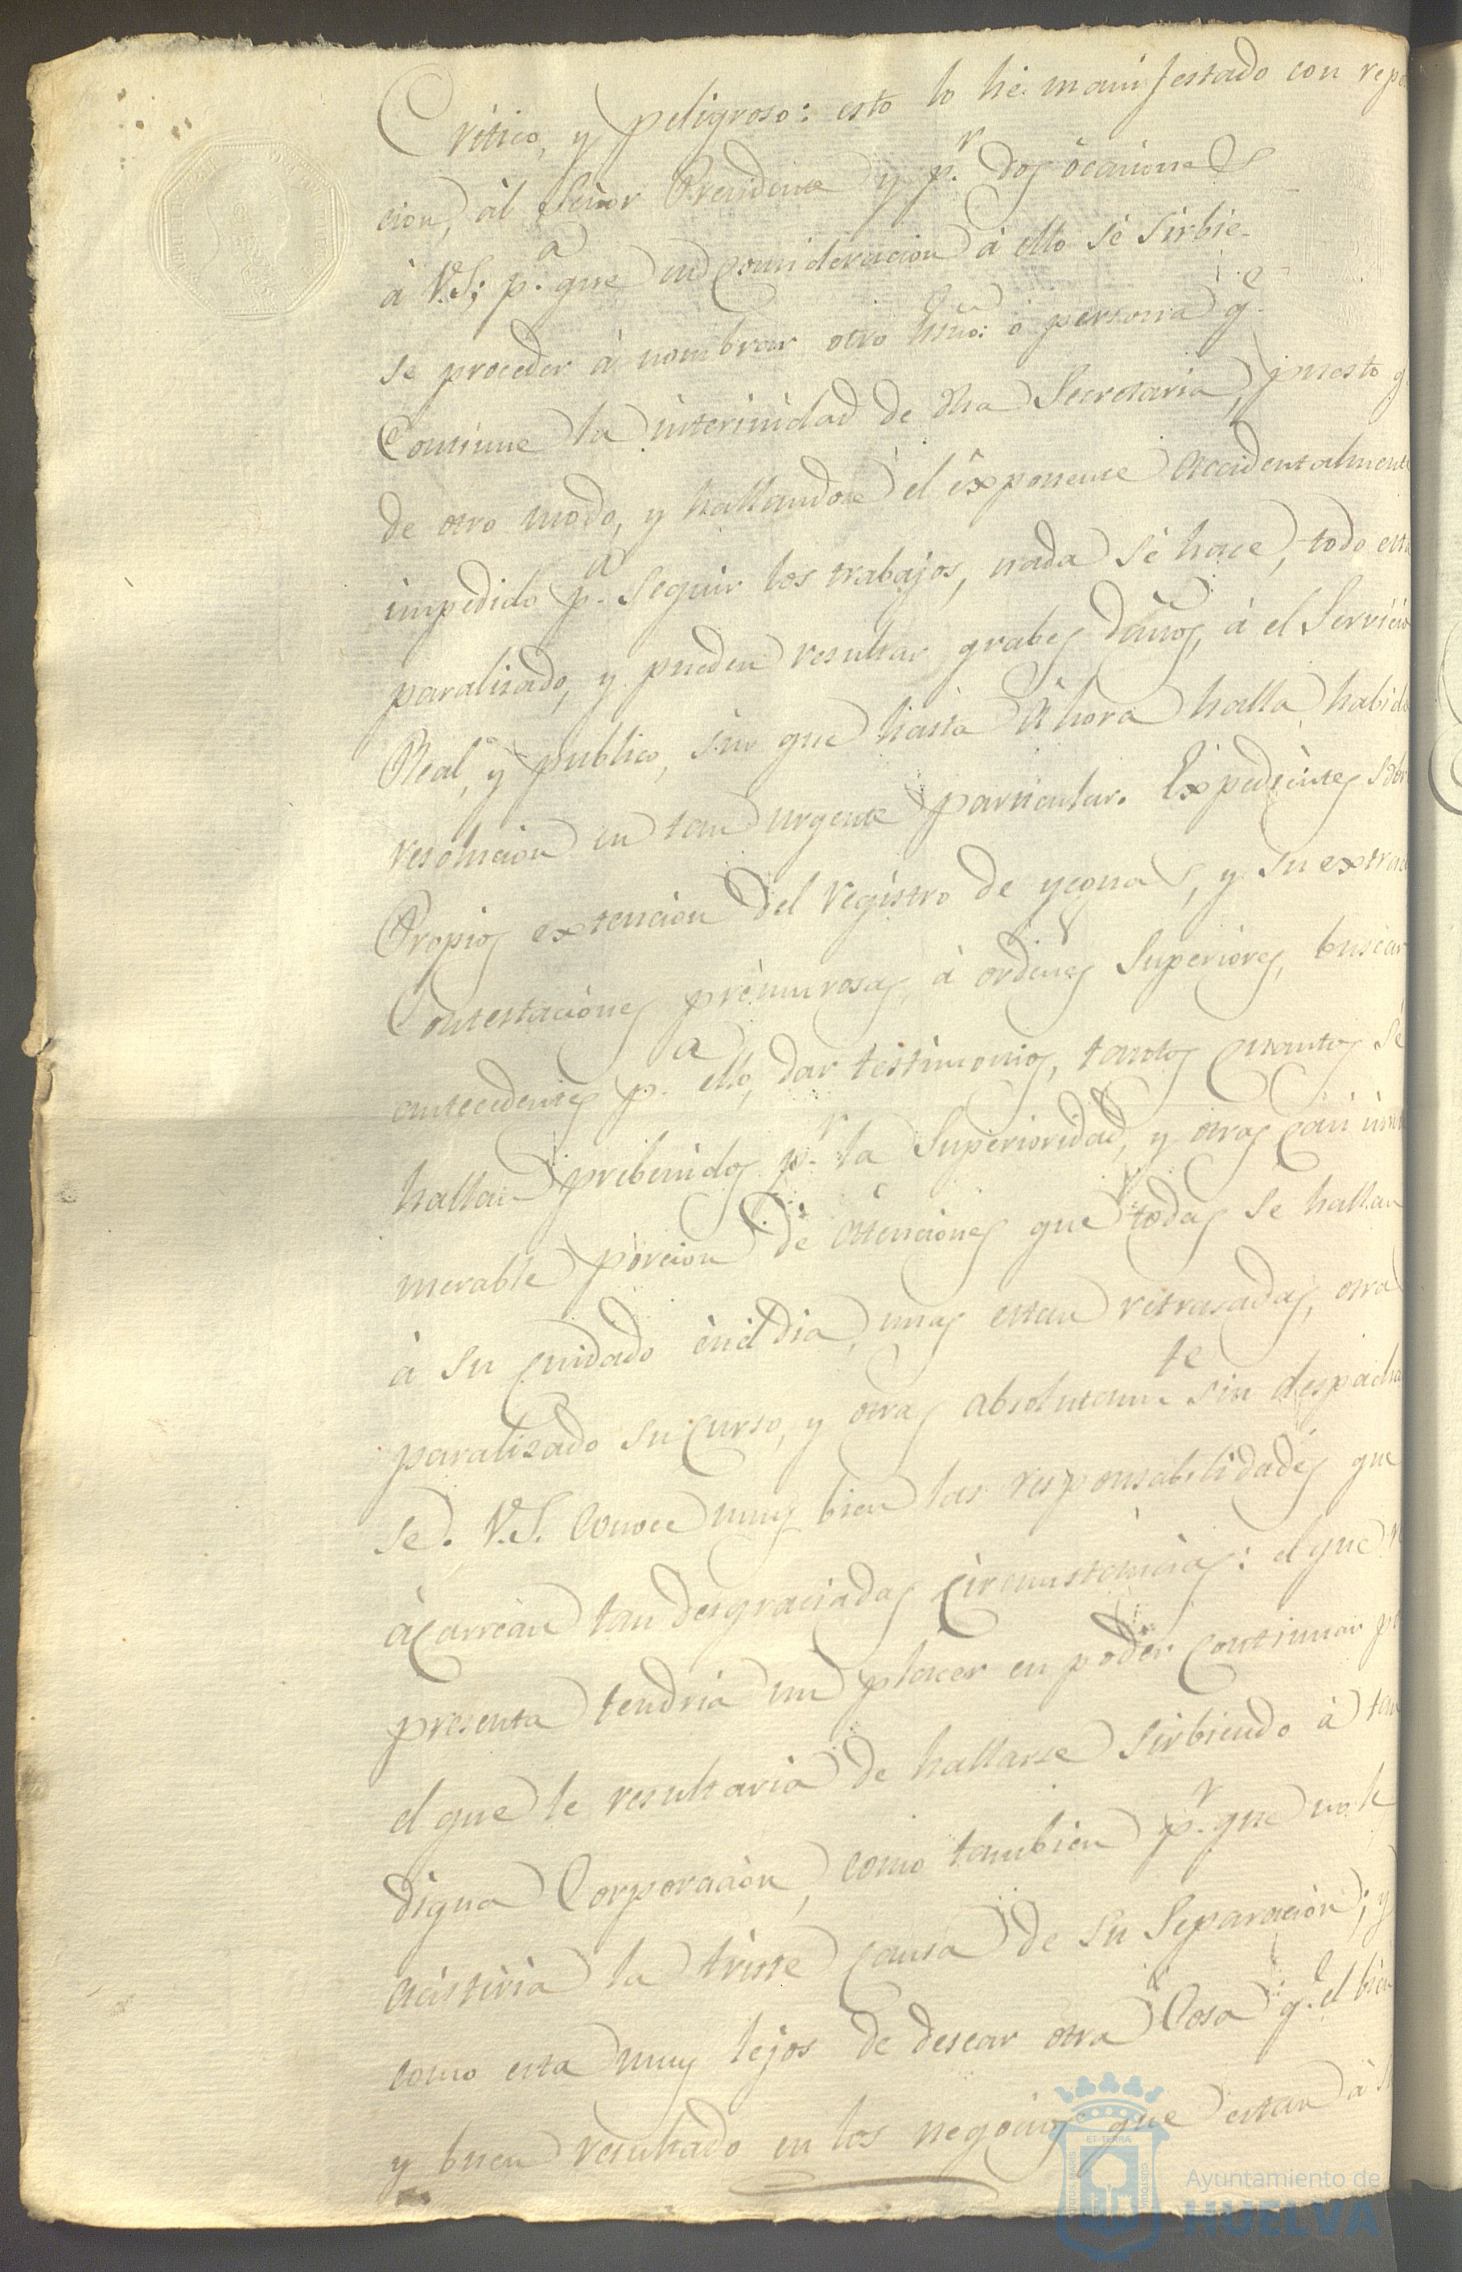 Critico, y peligroso: esto lo he manifestado con repe
cion, àl Señor Presidente y p.r dos ôcaciones
à V.S; p.a que en consideracion à ello se sirbie-
se proceder à nombrar otro Essno: ò persona q.e
Continue la interinidad de dha Secretaria, puesto q
de otro modo, y hallandose el exponente accidentalmente
impedido p.a seguir los trabajos, nada sè hace, todo está
paralisado, y pueden resultar grabes daños, à el Servicio
Real, y publico, sin que hasta Ahora halla habido
resolucion en tan urgente particular. Expedientes sobre
Propios extencion del registro de yeguas, y su extrac
Contestaciones prèmurosas, à ordenes Superiores, buscar
antecedentes p.a ello, dar testimonios, tantos quantos sè
hallan prebenidos p.r la Superioridad, y otras casi innu
merable porcion de atenciones que todas se hallan
à su cuidado ènel dia, unas estan retrasadas, otra
paralisado su curso, y otras absolutam.te sin despacha
se. V.S. Conoce muy bien las responsabilidades que
àcarrean tan desgraciadas circunstancias: el que re
presenta tendria un placer en poder continuar po
el que le resultaria de hallarse sirbiendo à tan
digna Corporacion, como tambien p.r que no le
acistiria la triste causa de su Separacion; y
como esta muy lejos de desear otra Cosa q.e el bien
y buen resultado en los negocios que estan à su
Ayuntamiento de
HUELVA